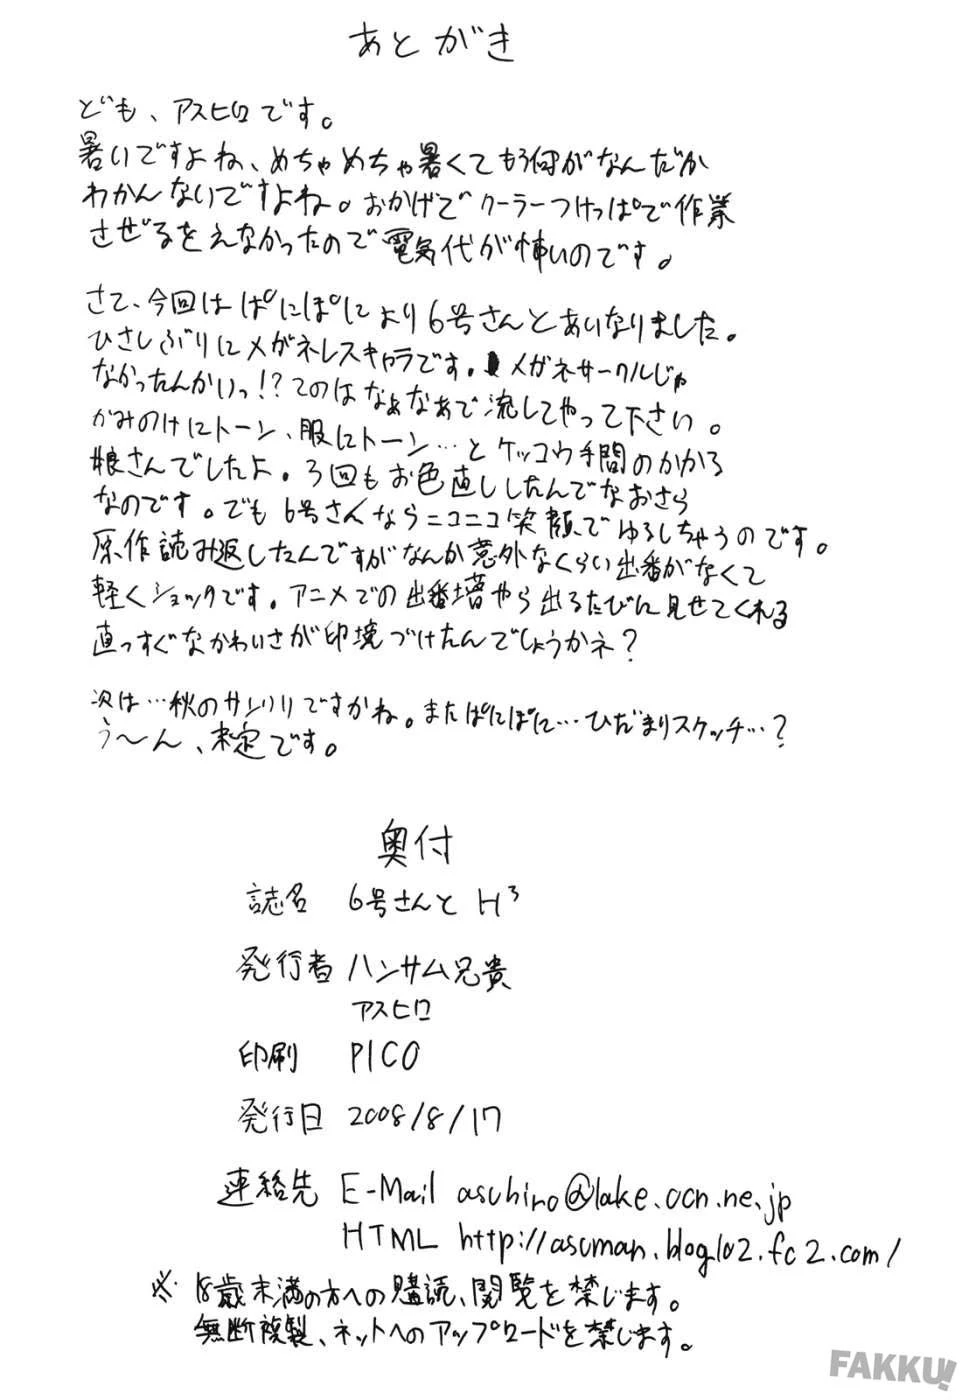 あとがき
ども、アスヒロです。
暑いですよね、めちゃめちゃ暑くてもう何がなんだか
わかんないですよね。おかげでクーラーつけっぱで作業
させざるをえなかったので電気代が怖いのです。
さて、今回はぱにぽにより6号さんとあいなりました。
ひさしぶりにメガネレスキャラです。メガネサークルじゃ
なかったんかいっ!?てのはなぁなあで流してやって下さい。
かみのけにトーン、服にトーン…とケッコウ手間のかかる
娘さんでしたよ。3回もお色直ししたんでなおさら
なのです。でも6号さんならニコニコ笑顔でゆるしちゃうのです。
原作読み返したんですがなんか意外なくらい出番がなくて
軽くショックです。アニメでの出番増やら出るたびに見せてくれる
直っすぐなかわいさが印境づけたんでしょうかネ?
次は…秋のサンクリですかね。またぱにぽに…ひだまりスケッチ…?
う～ん、未定です。
奥付
誌名 6号さんと H³
発行者 ハンサム兄貴
アスヒロ
印刷 PICO
発行日 2008/8/17
連絡先 E-Mail asuhiro@lake.ocn.ne.jp
HTML http://asuman.blog102.fc2.com/
※ 18歳未満の方への購読、閲覧を禁じます。
無断複製、ネットへのアップロードを禁じます。
FAKKU!